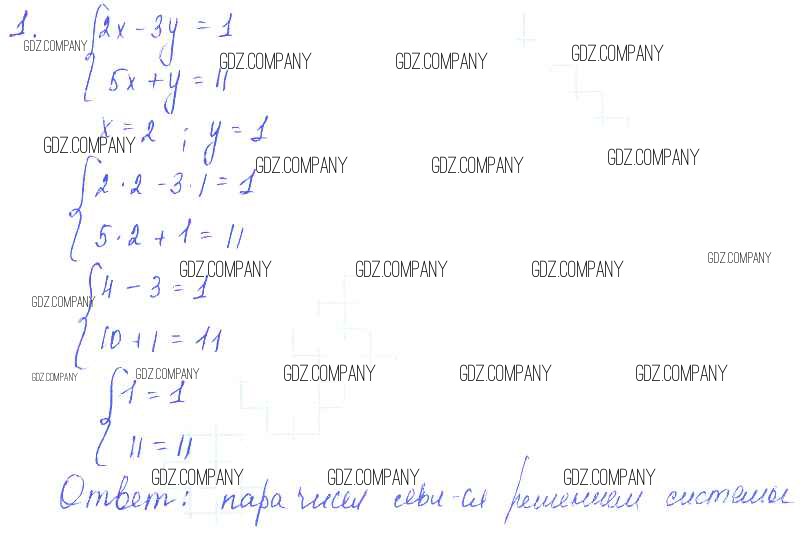 1. 2x - 3y = 1
GDZ.COMPANY GDZ.COMPANY GDZ.COMPANY GDZ.COMPANY
5x + y = 11
x = 2 ; y = 1
GDZ.COMPANY GDZ.COMPANY GDZ.COMPANY GDZ.COMPANY
2 · 2 - 3 · 1 = 1
5 · 2 + 1 = 11
GDZ.COMPANY GDZ.COMPANY GDZ.COMPANY GDZ.COMPANY
4 - 3 = 1
GDZ.COMPANY
10 + 1 = 11
GDZ.COMPANY GDZ.COMPANY GDZ.COMPANY GDZ.COMPANY GDZ.COMPANY
1 = 1
11 = 11
GDZ.COMPANY GDZ.COMPANY GDZ.COMPANY
Ответ: пара чисел решением системы